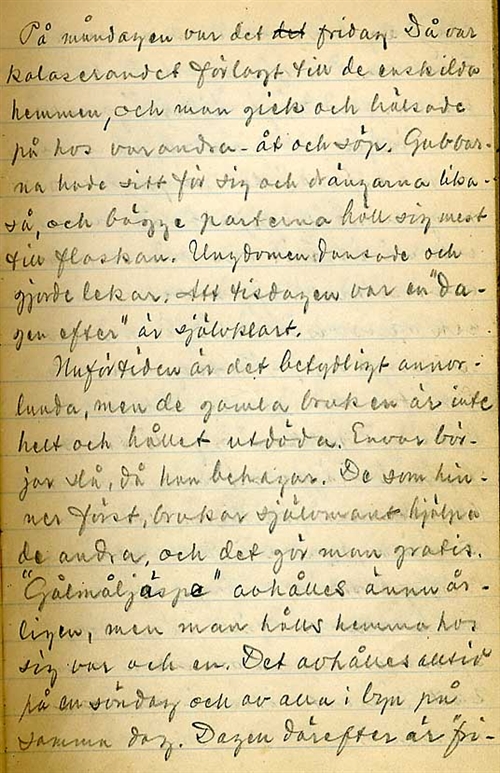 På måndagen var det det fridag. Då var
kalaserandet förlagt till de enskilda
hemmen, och man gick och hälsade
på hos varandra - åt och söp. Gubbar-
na hade sitt för sig och drängarna lika-
så, och bägge parterna höll sig mest
till flaskan. Ungdomen dansade och
gjorde lekar. Att tisdagen var en "da-
gen efter" är självklart.
Nuförtiden är det betydligt annor-
lunda, men de gamla bruken är inte
helt och hållet utdöda. Envar bör-
jar slå, då han behagar. De som hin-
ner först, brukar självmant hjälpa
de andra, och det gör man gratis.
"Gålmåljäspe" avhålles ännu år-
ligen, men man hålls hemma hos
sig var och en. Det avhålles alltid
på en söndag och av alla i byn på
samma dag. Dagen därefter är "fri-